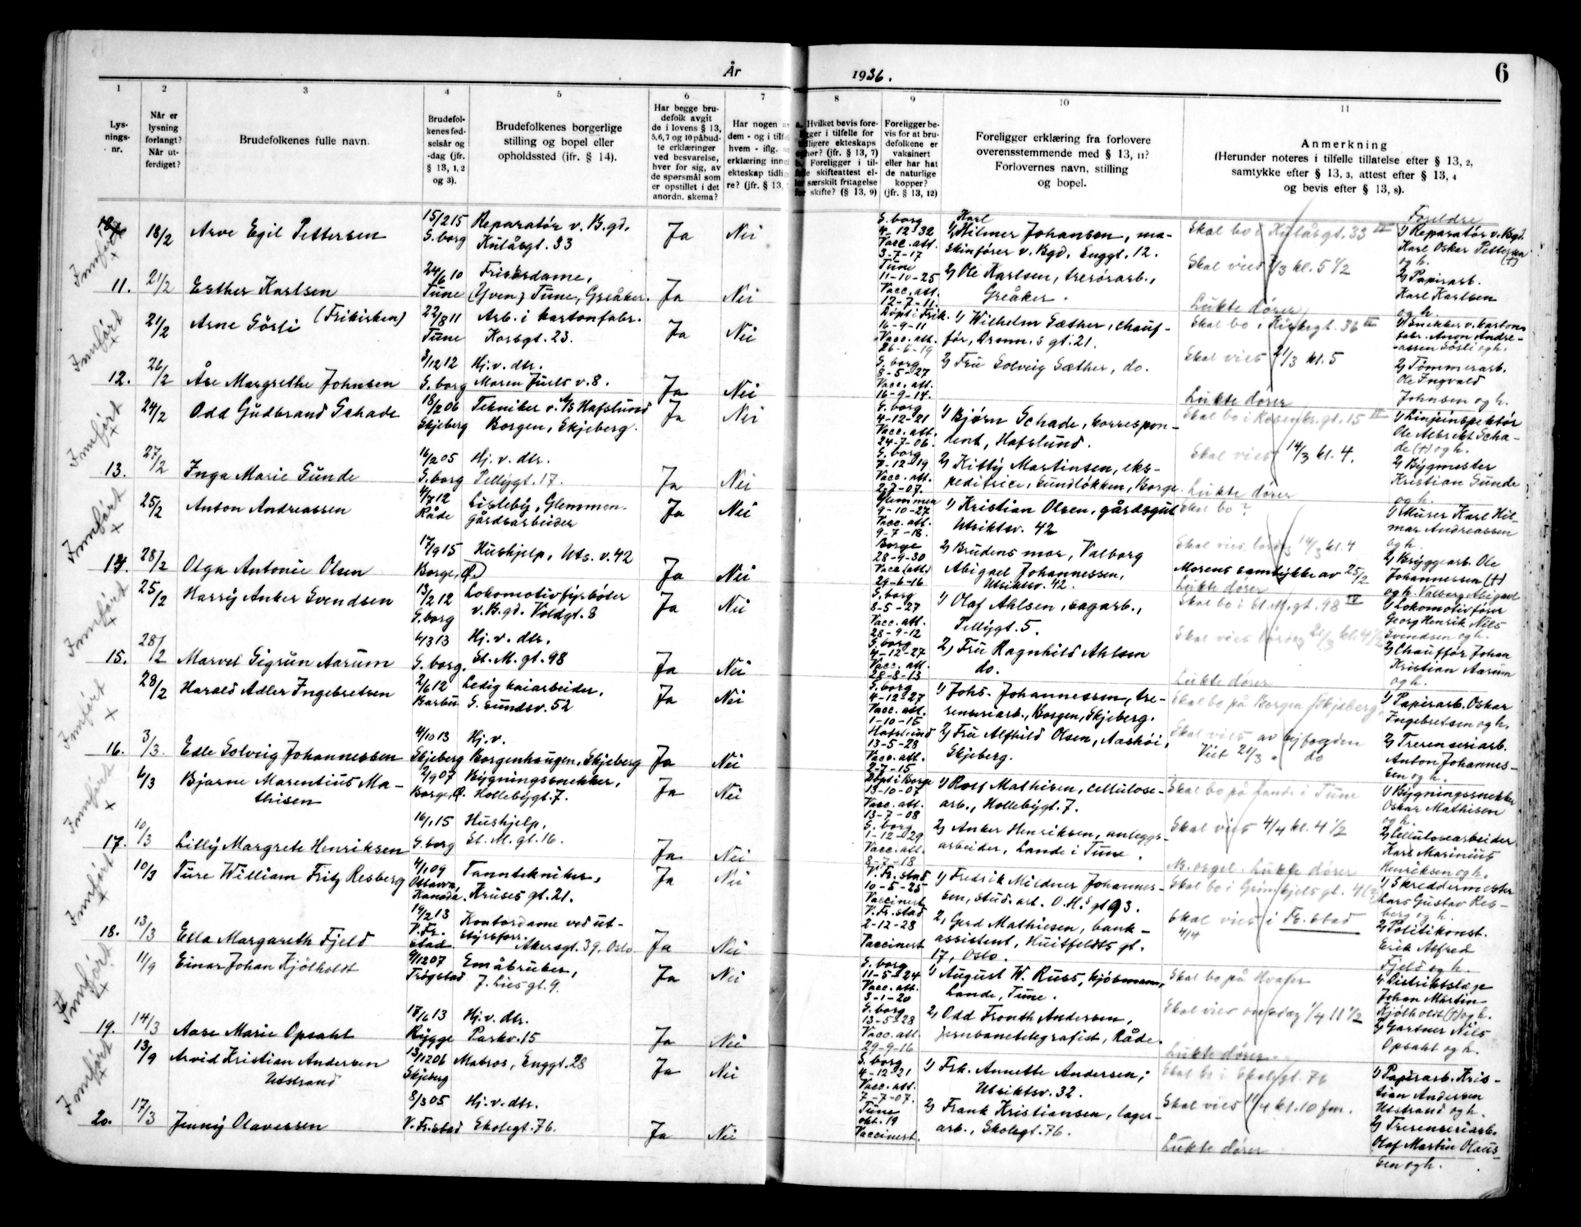 År
1936.
6
1
2
3
4
5
6
7
8
9
10
11
Lys-
nings-
nr.
Når er
lysning
forlangt?
Når ut-
ferdiget?
Brudefolkenes fulle navn.
Brudefol-
kenes fød-
selsår og
-dag (jfr.
§ 13, 1, 2
og 3).
Brudefolkenes borgerlige
stilling og bopel eller
opholdssted (ifr. § 14).
Har begge bru-
defolk avgit
de i lovens § 13,
5,6,7 og 10 påbud-
te erklæringer
ved besvarelse,
hver for sig, av
de spørsmål som
er opstillet i det
anordn. skema?
Har nogen a
dem - og i tilf
hvem - iflg.
erklæring inn
ekteskap tidli
re? (jfr. § 13,
Hvilket bevis fore-
ligger i tilfelle for
tidligere ekteskaps
ophør? (jfr. § 13, 7)
Foreligger i til-
felle skifteattest el-
særskilt fritagelse
for skifte? (§ 13, 9)
Foreligger be-
vis for at bru-
defolkene er
vaksinert
eller har hat
de naturlige
kopper?
(jfr. § 13, 12)
Foreligger erklæring fra forlovere
overensstemmende med § 13, 11?
Forlovernes navn, stilling
og bopel.
Anmerkning
(Herunder noteres i tilfelle tillatelse efter § 13, 2,
samtykke efter § 13, 3, attest efter § 13, 4
og bevis efter § 13, 8).
Innført
11.
18/2
Arve Egil Pettersen
15/2 15
S. borg
Reparatør v. B.gd.
Kulåsgt. 33
Ja
Nei
S. borg
4-12-32
Vacc. att.
3-7-17
Karl
1) Hilmer Johansen, ma-
skinfører v. Bgd, Enggt. 12.
Skal bo i Kulåsgt. 33 III
Foreldre
1) Reparatør v. Bgd.
Karl Oskar Pettersen (†)
og h.
21/2
Esther Karlsen
24/6 10
Tune
Friserdame,
(Yven) Tune, Greåker.
Ja
Nei
Tune
11-10-25
Vacc. att.
12-7-11
2) Ole Karlsen, trerørarb.,
Greåker.
Skal vies 7/3 kl. 5 1/2
Lukte dører
2) Papirarb.
Karl Karlsen
og h.
Innført
12.
21/2
Arne Sörli (Frikirken)
22/8 11
Tune
Arb. i kartonfabr.
Korsgt. 23.
Ja
Nei
Döpt i Frik.
16-9-11
Vacc. att.
26-6-19
1) Wilhelm Sæther, chauf-
för, Dronn.s gt. 21.
Skal bo i Kirkegt. 36 III
1) Snekker v. karton-
fabr. Anon Andre-
assen Sörli og h.
26/2
Åse Margrethe Johnsen
3/12 12
S. borg
Hj. v. dtr.
Maren Juels v. 8.
Ja
Nei
S. borg
8-5-27
Vacc. att.
16-9-14
2) Fru Solveig Sæther, do.
Skal vies 21/3 kl. 5
Lukte dører
2) Tömmerarb.
Ole Ingvald
Johnsen og h.
Innført
13.
24/2
Odd Gudbrand Schade
18/2 06
Skjeberg
Tekniker v. A/S Hafslund
Borgen, Skjeberg.
Ja
Nei
S. borg
4-12-21
Vacc. att.
24-7-06.
1) Bjørn Schade, korrespon-
dent, Hafslund.
Skal bo i Rosenkr. gt. 15 II
1) Linjeinspektör
Ole Albrekt Scha-
de (†) og h.
27/2
Inga Marie Gunde
16/2 05
S. borg
Hj. v. dtr.
Pellygt. 17.
Ja
Nei
S. borg
7-12-19
Vacc. att.
2-7-07.
2) Kitty Martinsen, eks-
peditrice, Sundløkken, Borge.
Skal vies 14/3 kl. 4.
Lukte dører
2) Bygmester
Kristian Gunde
og h.
Innført
14.
25/2
Anton Andreassen
4/7 12
Råde
Lisleby, Glemmen
gårdsarbeider
Ja
Nei
Glemmen
9-10-27
Vacc. att.
9-7-18.
1) Kristian Olsen, gårdsgut
Utsiktsv. 42
Skal bo?
1) Murer Karl Hil-
mar Andreassen
og h.
28/2
Olga Antonie Olsen
17/9 15
Borge, Ø.
Hushjelp, Uts. v. 42
Ja
Nei
Borge
28-9-30
Vacc. (att.)
29-6-16.
2) Brudens mor, Valborg
Abigael Johannessen,
Utsiktsv. 42.
Skal vies lørdag 14/3 kl. 4
Morens samtykke av 25/2
Lukte dører
2) Bryggearb. Ole
Johannessen (†)
og h. Valborg Abigael
Innført
15.
25/2
Harry Anker Svendsen
13/2 12
S. borg
Lokomotivfyrbøter
v. B.gd. Voldgt. 8
Ja
Nei
S. borg
8-5-27
Vacc. att.
28-9-12
1) Olaf Ahlsen, lagarb.,
Pellygt. 5.
Skal bo i St. M. gt. 98 IV
1) Lokomotivfører
Georg Henrik Nils
Svendsen og h.
28/2
Marvel Sigrun Aarum
4/3 13
S. borg.
Hj. v. dtr.
St. M. gt. 98
Ja
Nei
S. borg
4-12-27
Vacc. att.
28-8-13
2) Fru Ragnhild Ahlsen
do.
Skal vies lørdag 21/3 kl. 4 1/2
Lukte dører
2) Chaufför Johan
Kristian Aarum
og h.
Innført
16.
28/2
Harald Adler Ingebretsen
2/6 12
Barbu
Ledig kaiarbeider,
S. Sundsv. 52
Ja
Nei
S. borg
4-12-27
Vacc. att.
1-10-15
1) Johs. Johannessen, tre-
renseriarb., Borgen, Skjeberg.
Skal bo på Borgen, Skjeberg.
1) Papirarb. Oskar
Ingebretsen og h.
3/3
Edle Solveig Johannessen
4/10 13
Skjeberg
Hj. v.
Borgenhaugen, Skjeberg
Ja
Nei
Hafslund
13-5-28
Vacc. att.
2-7-15
2) Fru Alfhild Olsen, Aashöi,
Skjeberg.
Skal vies av byfogden
Viet 21/3 do
2) Trerenseriarb.
Anton Johannes-
sen og h.
Innført
17.
6/3
Bjarne Marentius Ma-
thisen
2/9 07
Borge, Ø.
Bygningssnekker,
Hollebygt. 7.
Ja
Nei
Døpt i Borge
13-10-07
Vacc. att.
13-7-08
1) Rolf Mathisen, cellulose-
arb., Hollebygt. 7.
Skal bo på Lande i Tune
1) Bygningssnekker
Oskar Mathisen
og h.
10/3
Lilly Margrete Henriksen
16/1 15
S. borg
Hushjelp,
St. M. gt. 16.
Ja
Nei
S. borg
1-12-29
Vacc. att.
8-7-18
2) Anker Henriksen, anleggs-
arbeider, Lande i Tune.
Skal vies 4/4 kl. 4 1/2
N.B. orgel. Lukte dører
2) Cellulosearbeider
Karl Marinius
Henriksen og h.
Innført
18.
10/3
Ture William Fritz Resberg
4/1 09
Ottawa,
Kanada
Tanntekniker,
Kruses gt. 21.
Ja
Nei
V. Fr. stad
10-5-25
Vaccinert
1) Fredrik Mildner Johannes-
sen, stud. art. O.H.s gt 93.
Skal bo i Grimkjels gt.
1) Skreddermester
Lars Gustav Res-
berg og h.
13/3
Ella Margareth Fjeld
14/2 13
V. Fr.
stad
Kontordame ved ut-
styrsforr. Akersgt. 39. Oslo
Ja
Nei
V. Fr. stad
2-12-28
Vaccinert
2) Gerd Mathiesen, bank-
assistent, Huitfeldts gt.
17, Oslo.
Skal vies i Fr. stad
4/4
2) Politikonst.
Erik Alfred
Fjeld og h.
Innført
19.
11/9
Einar Johan Kjölholdt
9/12 07
Trøgstad
Småbruker,
J. Lies gt. 9
Ja
Nei
S. borg
11-5-24
Vacc. att.
3-1-20
1) August W. Russ, kjøbmann,
Lande, Tune.
Skal bo på Hvaler
1) Distriktslæge
Johan Martin
Kjölholdt (†) og h.
14/3
Aase Marie Opsahl
17/6 13
Rygge
Hj. v. dtr.
Parkv. 15
Ja
Nei
S. borg
13-5-28
Vacc. att.
29-9-16
2) Odd Fronth Andersen,
Jernbanetelegrafist, Råde.
Skal vies onsdag 1/4 11 1/2
Lukte dører.
2) Gartner Nils
Opsahl og h.
Innført
20.
13/9
Arvid Kristian Andersen
Utstrand
13/12 06
Skjeberg
Matros, Enggt. 28
Ja
Nei
S. borg
4-12-21
Vacc. att.
7-7-07.
1) Frk. Annette Andersen;
Utsiktsv. 32.
Skal bo i Skolegt. 76
1) Papirarb. Kris-
tian Andersen
Utstrand og h.
17/3
Jenny Olavessen
8/3 05
V. Fr. stad
Hj. v. dtr.
Skolegt. 76.
Ja
Nei
Tune
okt. 19
Vaccinert.
2) Frank Kristiansen, lager-
arb., Skolegt. 76.
Skal vies 11/4 kl. 10 fm.
Lukte dører
2) Trerenseriarb.
Olaf Martin Olaus-
sen og h.